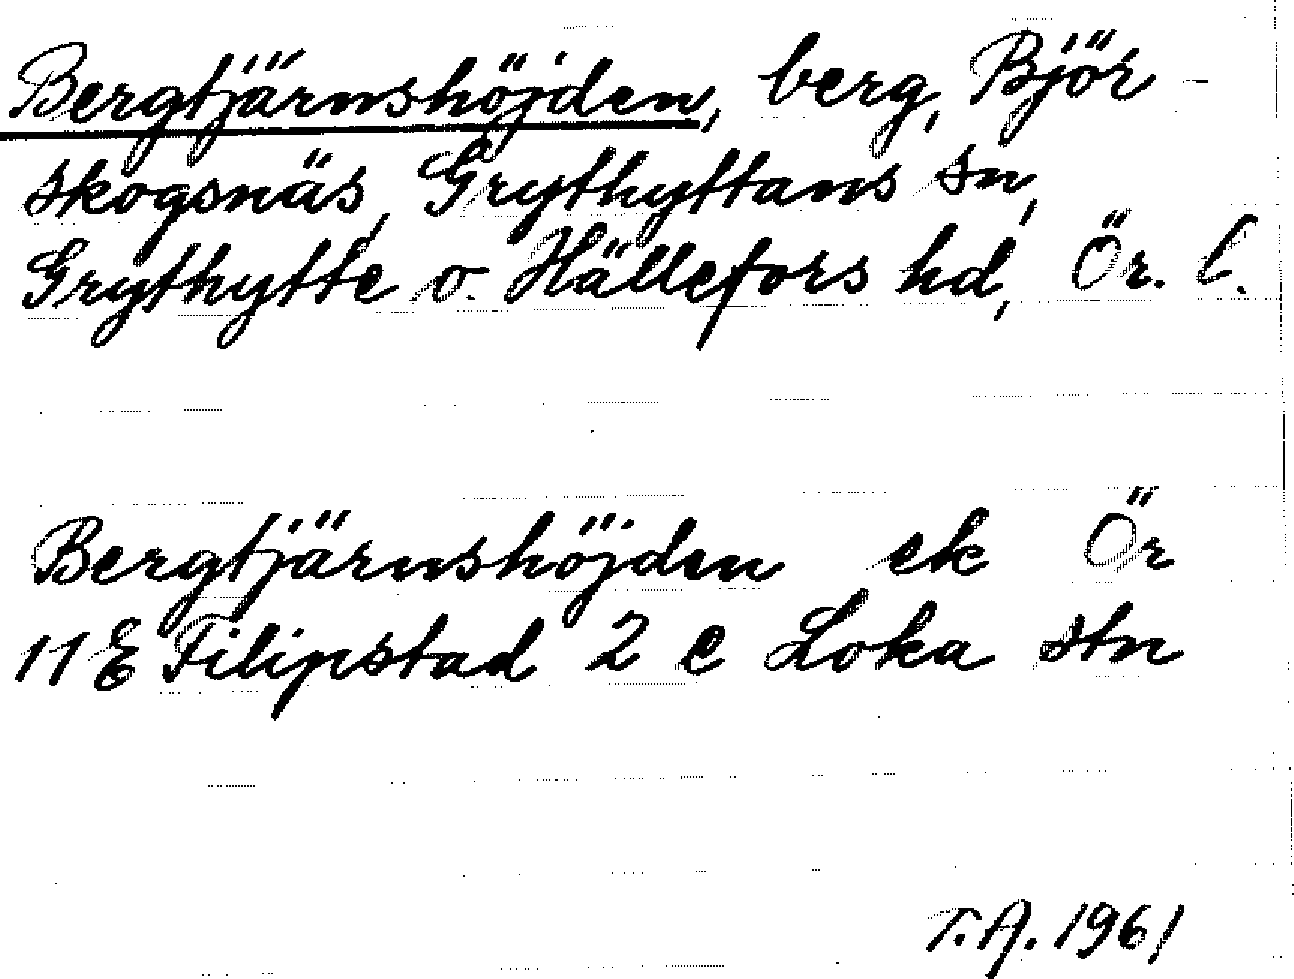 Bergtjärnshöjden, berg, Björ-
skogsnäs, Grythyttans sn,
Grythytte o. Hällefors hd, Ör. l.
Bergtjärnshöjden ek Ör
11 E Filipstad 2 e Loka stn
T.A. 1961